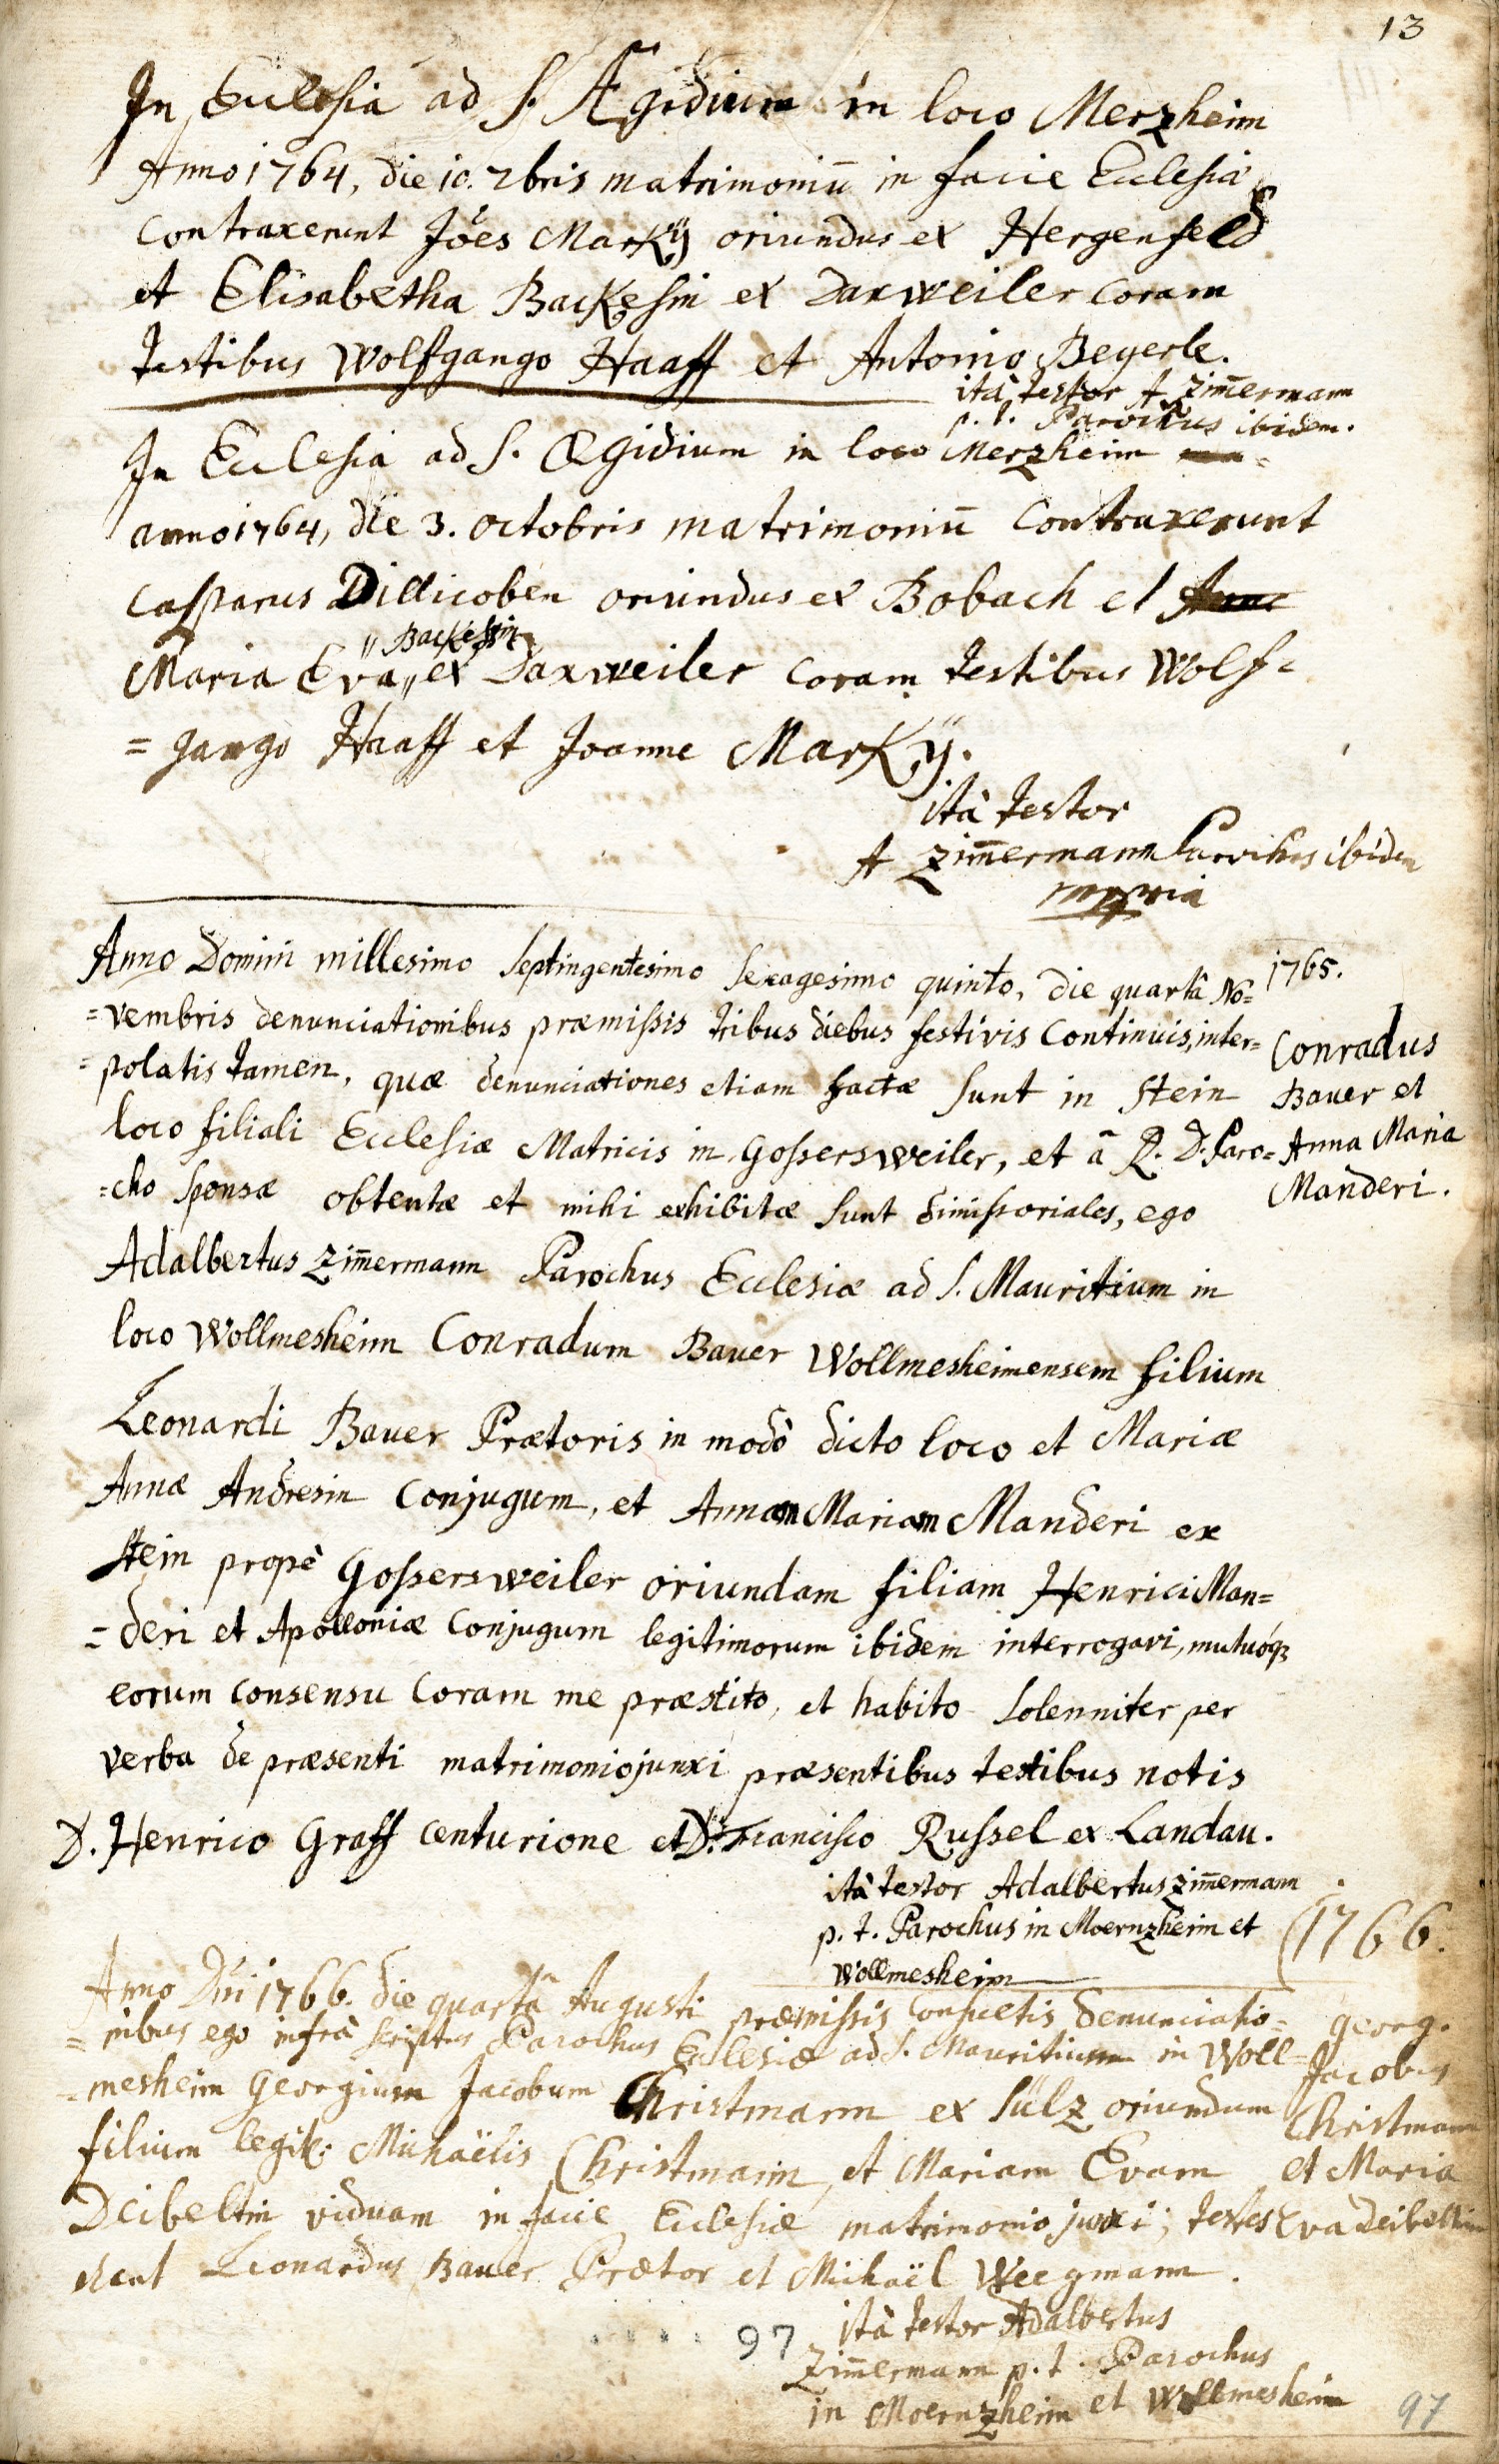 13
In Ecclesia ad S. Ægidium in loco Merzheim
Anno 1764, die 10. 7bris matrimoniū in facie Ecclesiæ
contraxerunt Jōes Marky̎ oriundus ex Hergenfeld
et Elisabetha Backesin ex Daxweiler coram
testibus Wolfgango Haaff et Antonio Beyerle.
ità testor A Zim̄ermann
p. t. Parochus ibidem.
In Ecclesia ad S. Ægidium in loco Merzheim
anno 1764, die 3. octobris matrimoniū contraxerunt
Casparus Dillicoben oriundus ex Bobach et
" Backessin
Maria Eva " ex Daxweiler coram testibus Wolf=
=gango Haaff et Joanne Marky̎.
ità testor
A Zim̄ermann Parochus ibidem
mppria
Anno Domini millesimo septingentesimo sexagesimo quinto, die quartâ No=
1765.
=vembris denunciationibus præmissis tribus diebus festivis continuis, inter=
=polatis tamen, quæ denunciationes etiam factæ sunt in Stein
loco filiali Ecclesiæ Matricis in Gossersweiler, et â R. D. Paro=
=cho sponsæ obtentæ et mihi exhibitæ sunt dimissoriales, ego
Conradus
Bauer et
Anna Maria
Manderi.
Adalbertus Zim̄ermann Parochus Ecclesiæ ad S. Mauritium in
loco Wollmesheim Conradum Bauer Wollmesheimensem filium
Leonardi Bauer Prætoris in modò dicto loco et Mariæ
Annæ Andresin conjugum, et Annam Mariam Manderi ex
Stein propè Gossersweiler oriundam filiam Henrici Man=
=deri et Apolloniæ conjugum legitimorum ibidem interrogavi, mutuóq3
eorum consensu coram me præstito, et habito solenniter per
verba de præsenti matrimonio junxi præsentibus testibus notis
D. Henrico Graff centurione et D. Francisco Russel ex Landau.
ità testor Adalbertus Zim̄ermann
p. t. Parochus in Moernzheim et
Wollmesheim
1766.
Anno Dñi 1766. die quartâ Augusti præmissis consuetis denunciatio=
=nibus ego infrà scriptus Parochus Ecclesiæ ad S. Mauritium in Woll=
=mesheim Georgium Jacobum Christmann ex Sülz oriundum
filium legit: Michaëlis Christmann, et Mariam Evam
Deibeltin viduam in facie Ecclesiæ matrimonio junxi; testes
erant Leonardus Bauer Prætor et Michaël Weegmann.
Georg.
Jacobus
Christmann
et Maria
Eva Deibeltin
ità testor Adalbertus
Zim̄ermann p. t. Parochus
in Moernzheim et Wollmesheim
97
97